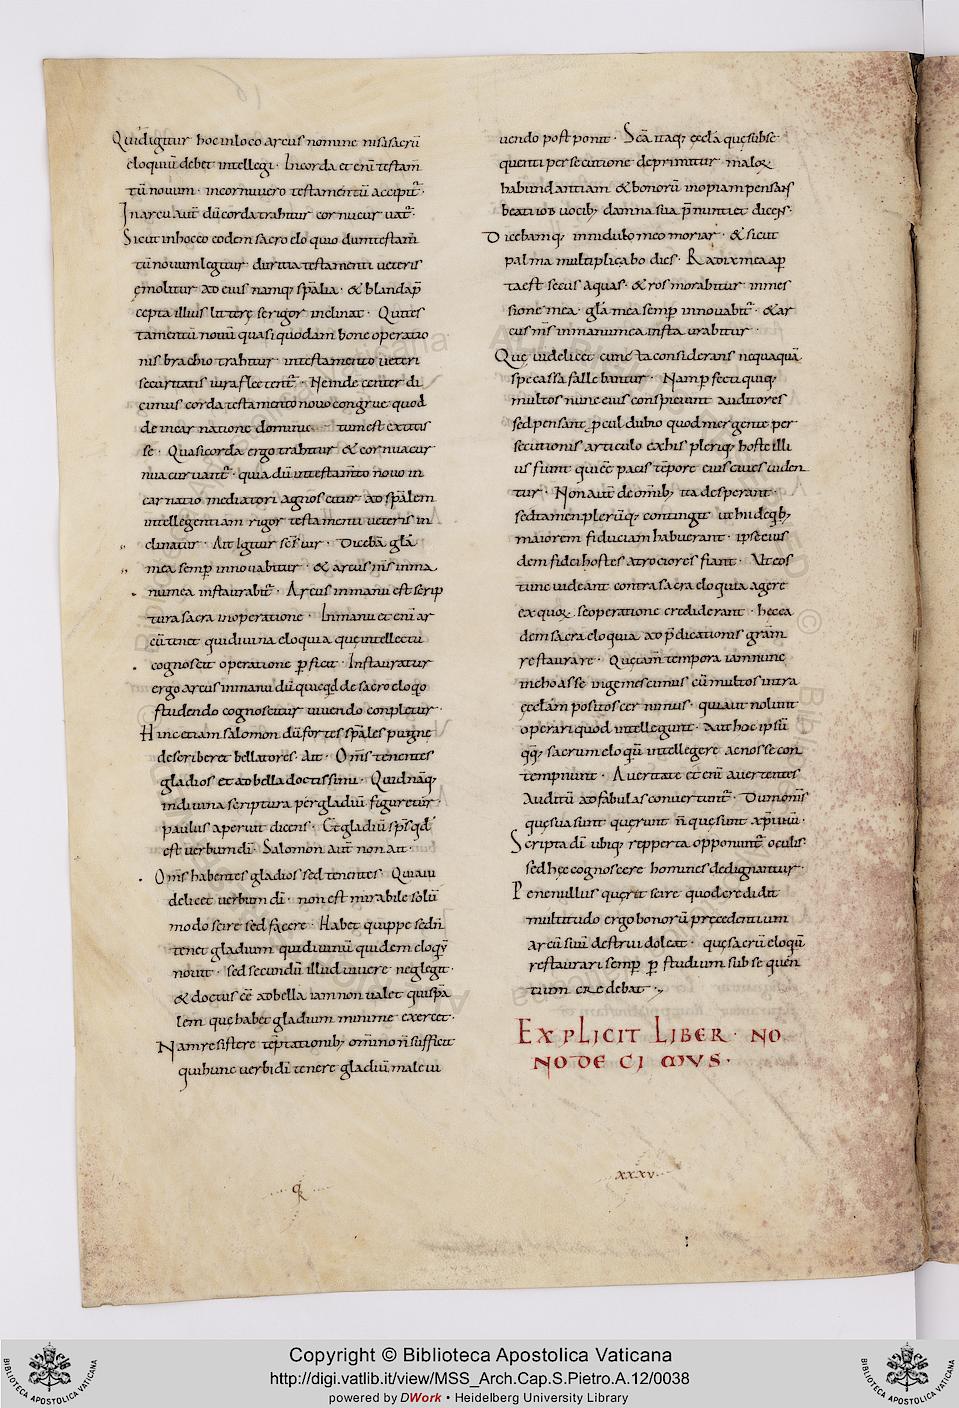 Quid igitur hoc in loco arcus nomine nisi sacrū
eloquiū debet intellegi · In corda et eni᷑ testam
tū nouum · in cornu uero testamentū accipit᷑ ·
In arcu aut̄ dū corda trahitur cornu curuat᷑ ·
Sicut in hoc eodem sacro eloquio dum testam̄
tū nouum legitur · duritia testamenti ueteris
ęmollitur ad eius namq; sp̄alia · & blanda p̄
cepta illius litterę se rigor inclinat · Qui tes
tamentū nouū quasi quodam bone operatio
nis brachio trahitur · in testamento ueteri
securitatis iura flectent᷑ · Ne inde center di
cimus corda testamento nouo congrue quod
de incarnatione dominic tum est extitis
se · Quasi corda ergo trahitur & cornua cur
nua curuant᷑ · quia dū in testam̄to nouo in
carnatio mediatori agnoscitur · ad sp̄alem
intellegentiam rigor testamenti ueteris in
clinatur · Ait igitur scr̄itur · Diceba gl̄a
mea semp̄ innouabitur · & arcus m̄s in ma
nu mea instaurabit᷑ · Arcus in manu est scrip
tura sacra in operatione · In manu et eni᷑ ar
cū tenet qui diuina eloquia que intellectu
cognoscit operatione ꝑficit · Instauratur
ergo arcus in manu dū quicqd̄ de sacro eloqo
studendo cognoscitur uiuendo conpletur ·
Hinc etiam salomon dū fortes sp̄ales pugne
describeret bellatores · Ait · Om̄s tenentes
gladios et ad bella doctissimi · Quid nāq;
in diuina scriptura per gladiū figuretur ·
paulus aperuit dicens · Et gladiū sp̄s qd̄
est uerbum dī · Salomon aut̄ non ait ·
Om̄s habentes gladios sed tenentes · Quia ui
delicet uerbum dī · non est mirabile solū
modo scire sed facere · Habet quippe sed n̄
tenet gladium qui diuinū quidem eloqū
nouit · sed secundū illud uiuere neglegit ·
& doctus eē ad bella iam non ualet qui sp̄a
lem que habet gladium minime exercet ·
Nam resistere tēptationib; om̄ino n̄ sufficit
qui hunc uerbi dī tenere gladiū male ui
uendo postponit · Sc̄a itaq; ęccl̄a quę subse
quenti persecutione deprimitur · maloꝝ
habundantiam & bonorū inopiam pensans
beati iob uocib; damna sua p̄nuntiet dicens ·
Dicebamq; in nidulo meo moriar · & sicut
palma multiplicabo dies · Radix mea ap
ta est secus aquas · & ros morabitur in mes
sione mea · gl̄a mea semp̄ innouabit᷑ · & ar
cus m̄s in manu mea instaurabitur ·
Quę uidelicet cuncta considerans nequaquā
spe cassa fallebantur · Nam p̄fecti quiq;
multos nunc eius conspiciunt auditores
sed pensant ꝓcul dubio quod uergente per
secutionis articulo ex his pleriq; hoste illi
us fiunt qui eē pacis tēpore eius ciues uiden
tur · Non aut̄ de om̄ib; ita desperant ·
sed tamen plerūq; contingit · ut hi de qb;
maiorem fiduciam habuerant · ipse eius
dem fidei hostes atrociores fiant · Ait eos
tunc uideant contra sacra eloquia agere
ex quoꝝ se operatione crediderant · hec ea
dem sacra eloquia ad p̄dicationis gram̄
restaurare · Que tam̄ tempora iam nunc
inchoasse ingemescimus cū multos intra
ęccl̄am positos cernimus · qui aut nolunt
operari quod intellegunt · Aut hoc ipsū
qq; sacrum eloqū intellegere ac nosse con
tempnunt · A ueritate et eni᷑ auertentes
auditū ad fabulas conuertunt᷑ · Dum om̄s
quę sua sunt querunt n̄ quę sunt xp̄i ihū ·
Scripta dī ubiq; repperta opponunt᷑ oculis ·
sed hęc cognoscere homines dedignantur ·
Pene nullus querit scire quod credidit
multitudo ergo bonorū precedentium
arcū suū destrui doleat · que sacrū eloqū
restaurari semp̄ ꝑ studium subsequen
tium credebat ·
EXPLICIT LIBER · NO
NODECIMUS ·
xxxv
Copyright © Biblioteca Apostolica Vaticana
http://digi.vatlib.it/view/MSS_Arch.Cap.S.Pietro.A.12/0038
powered by DWork • Heidelberg University Library